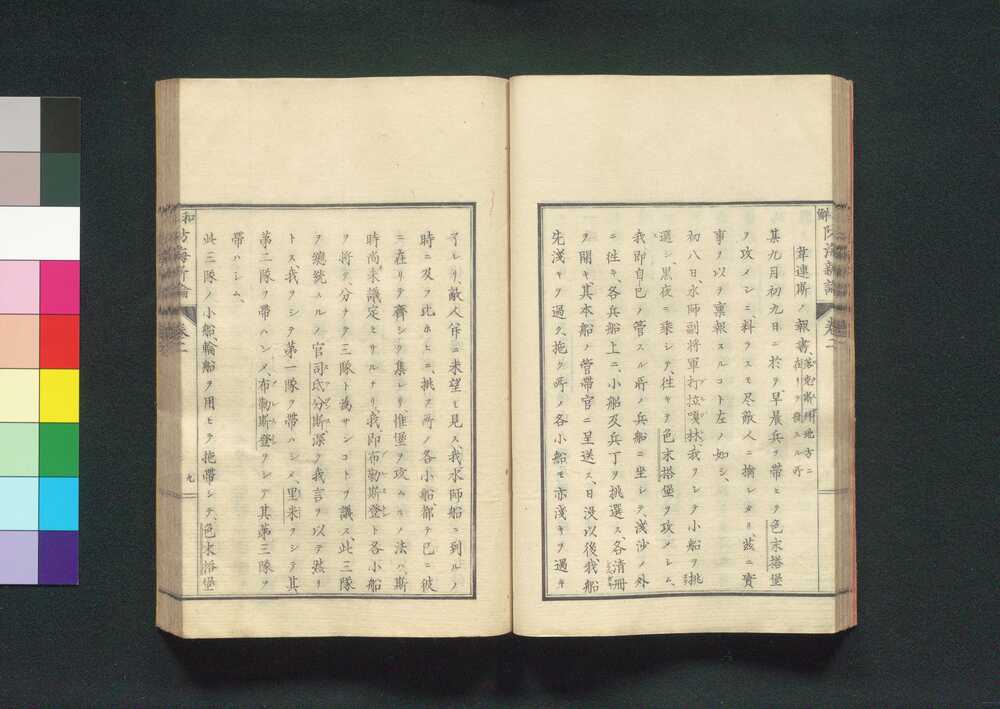 解防海新論 巻二
韋連斯ノ報書
某九月初九日ニ於テ早晨兵ヲ帯ヒテ色末塔堡
ヲ攻メシニ、料ラスモ尽敵人ニ擒レタリ茲ニ実
事ヲ以テ稟報スルコト左ノ如シ、
初八日、水師副将軍打拉嘎林我ヲシテ小船ヲ挑
選シ、黒夜ニ乗シテ、往キテ色末塔堡ヲ攻メシム、
我即自己ノ管スル所ノ兵船ニ坐シテ、浅沙ノ外
ニ往キ、各兵船上ニ、小船及兵丁ヲ挑選ス、各清冊
ヲ開キ、其本船ノ管帯官ニ呈送ス、日没以後我船
先浅キヲ過ク、拖ク所ノ各小船モ亦浅キヲ過キ
了レリ敵人倶ニ未望ミ見ス、我水師船ニ到ルノ
時ニ及ヲ比ホヒニ、挑フ所ノ各小船、都テ已ニ彼
ニ在リテ斉シク集レリ、惟堡ヲ攻ムルノ法ハ、斯
時尚未議定セサルナリ、我、即布勒斯登ト各小船
ヲ将テ、分チテ三隊ト為サンコトヲ議ス、此三隊
ヲ総統スルノ官司氏分斯深ク我言ヲ以テ然リ
トス、我ヲシテ第一隊ヲ帯ハシメ、里米ヲシテ其
第二隊ヲ帯ハシメ、布勒斯登ヲシテ其第三隊ヲ
帯ハシム、
此三隊ノ小船、輪船ヲ用ヒテ拖帯シテ、色末塔堡
和 防海新論 巻二 九